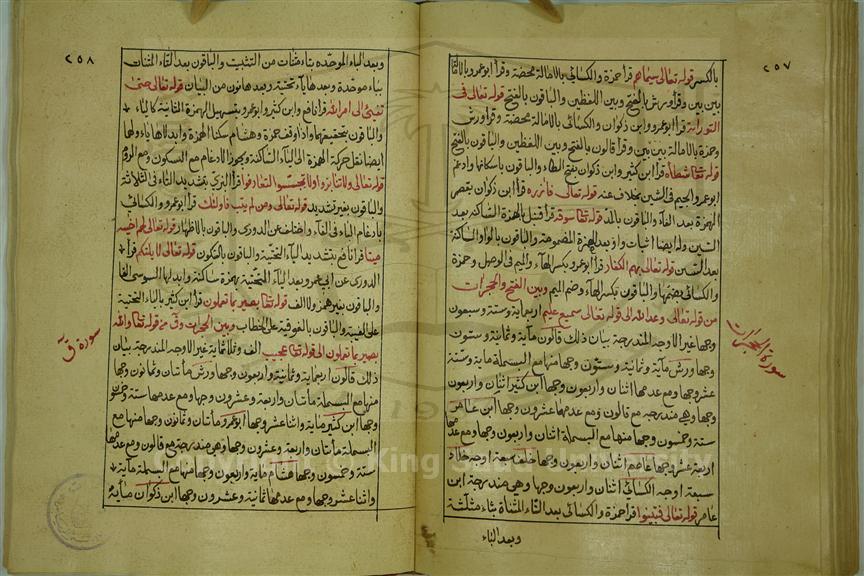 ٢٥٧
بالكسر قوله تعالى سيماهم قرأ حمزة والكسائي بالامالة محضة وقرأ ابو عمرو بالامالة
بين بين وقرأ ورش بالفتح وبين اللفظين والباقون بالفتح قوله تعالى في
التوراة قرأ ابو عمرو وابن ذكوان والكسائي بالامالة محضة وقرأ ورش
وحمزة بالامالة بين بين وقرأ قالون بالفتح وبين اللفظين والباقون بالفتح
قوله تعالى شطأه قرأ ابن كثير وابن ذكوان بفتح الطاء والباقون باسكانها وادغم
ابو عمرو الجيم في الشين بخلاف عنه قوله تعالى فآزره قرأ ابن ذكوان بقصر
الهمزة بعد الفاء والباقون بالمد قوله تعالى سوقه قرأ قنبل بالهمزة الساكنة بعد
السين وله ايضا اثبات واو بعد الهمزة المضمومة والباقون بالواو الساكنة
بعد السين قوله تعالى بهم الكفار قرأ ابو عمرو بكسر الهاء والميم في الوصل وحمزة
والكسائي بضمهما والباقون بكسر الهاء وضم الميم وبين الفتح والحجرات
من قوله تعالى وعد الله الى قوله تعالى سميع عليم اربعماية وستة وسبعون
وجها غير الاوجه المندرجة بيان ذلك قالون مأية وثمانية وستون
وجها ورش مأية وثمانية وستون وجها منهما مع البسملة ماية وستة
عشر وجها ومع عدمها اثنان واربعون وجها ابن كثير اثنان واربعون
وجها وهي مندرجة مع قالون ومع عدمها عشرون وجها ابن عامر
ستة وخمسون وجها منها مع البسملة اثنان واربعون وجها ومع عدمها
اربعة عشر وجها عاصم اثنان واربعون وجها خلف سبعة اوجه خلاد
سبعة اوجه الكسائي اثنان واربعون وجها وهي مندرجة ابن
عامر قوله تعالى فتبينوا قرأ حمزة والكسائي بعد التاء المثناة بثاء مثلثة
وبعد الباء
سورة الحجرات
٢٥٨
وبعد الباء الموحده بتاء مثناة من التثبت والباقون بعد التاء المثناة
بباء موحدة وبعدها ياء تحتية وبعدها نون من البيان قوله تعالى حتى
تفيئ الى امر الله قرأ نافع وابن كثير وابو عمرو بتسهيل الهمزة الثانية كالياء
والباقون بتحقيقهما واذا وقف حمزة وهشام سكنا الهمزة وابدلاها ياء ولهما
ايضا نقل حركة الهمزة الى الياء الساكنة ويجوز الادغام مع السكون ومع الروم
قوله تعالى ولا تنابزوا ولا تجسسوا لتعارفوا قرأ البزي بتشديد التاء في الثلاثة
والباقون بغير تشديد قوله تعالى ومن لم يتب فاولئك قرأ ابو عمرو والكسائي
بادغام الباء في الفاء واختلف عن الدوري والباقون بالاظهار قوله تعالى لحم اخيه
ميتا قرأ نافع بتشديد الياء التحتية والباقون بالسكون قوله تعالى لا يلتكم قرأ
الدوري عن ابي عمرو بعد الياء التحتية بهمزة ساكنة وابدلها السوسي الفا
والباقون بغير همز ولا الف قوله تعالى بصير بما تعملون قرأ ابن كثير بالياء التحتية
على الغيبة والباقون بالفوقية على الخطاب وبين الحجرات وق من قوله تعالى والله
بصير بما تعملون الى قوله تعالى عجيب الف وثلاثماية غير الاوجه المندرجة بيان
ذلك قالون اربعماية وثمانية واربعون وجها ورش مأتان وثمانون وجها
منها مع البسملة مأتان واربعة وعشرون وجها ومع عدمها ستة وخمسون
وجها ابن كثير ماية واثنا عشر وجها ابو عمرو مأتان وثمانون وجها منها مع
البسملة مأتان واربعة وعشرون وجها وهي مندرجة مع قالون ومع عدمها
ستة وخمسون وجها هشام ماية واربعون وجها منها مع البسملة مآية
واثنا عشر وجها ومع عدمها ثمانية وعشرون وجها ابن ذكوان مأية
سورة ق
King Saud University